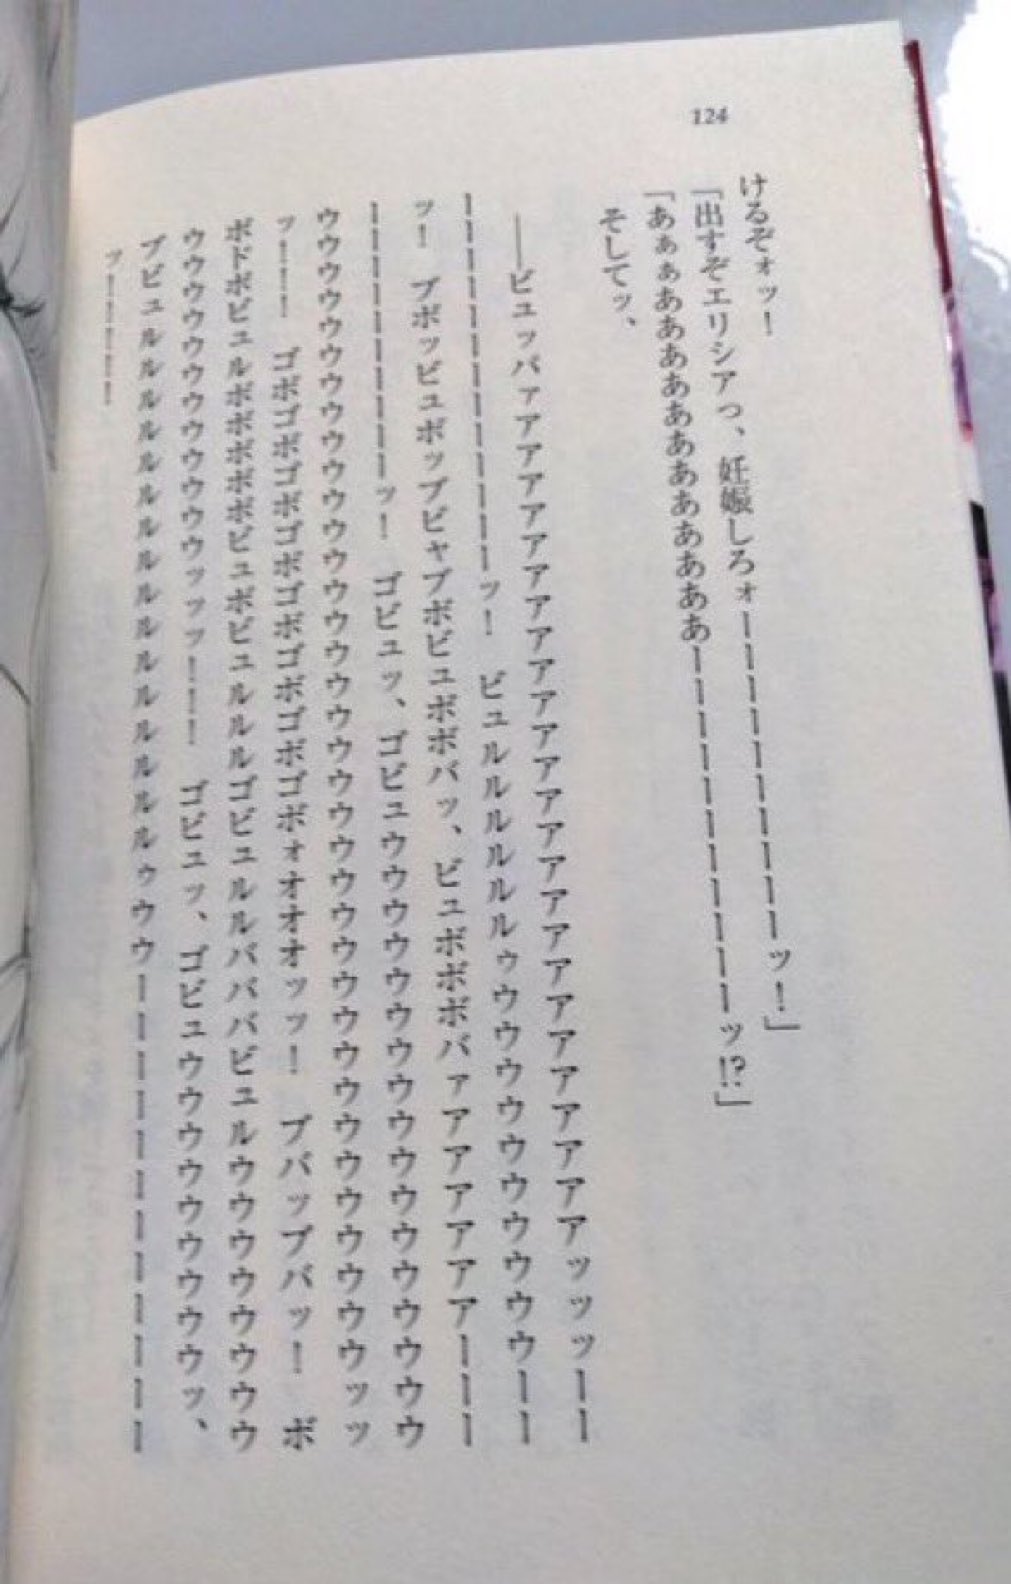 124
けるぞォッ！
「出すぞエリシアっ、妊娠しろォーーーーーーーーーーッ！」
「あぁぁあああああああああああーーーーーーーーーーーッ!?」
そしてッ、
――ビュッバァアアアアアアアアアアアアアアアアアアアアアアアアッッッーー
ーーーーーーーーーーーッ！　ビュルルルルルルルゥウウウウウウウウウウーーー
ッ！　ブボッビュボップビャブボビュボボバッ、ビュボボボバァアアアアアアーーー
ーーーーーーーーッ！　ゴビュッ、ゴビュウウウウウウウウウウウウウウウウウウ
ウウウウウウウウウウウウウウウウウウウウウウウウウウウウウウウウウッッ
ッーーー　ゴボゴボゴボゴボゴボゴボゴボゴボォオオオッッ！　ブバッブバッ！　ボ
ボドボビュルボボボボビュボビュルルルゴビュルルババババビュルウウウウウウウウ
ウウウウウウウウウウッッッーーー　ゴビュッ、ゴビュウウウウウウウウウウッ、
ブビュルルルルルルルルルルルルルルルルゥウウーーーーーーーーーーーーーー
ッーーーーー